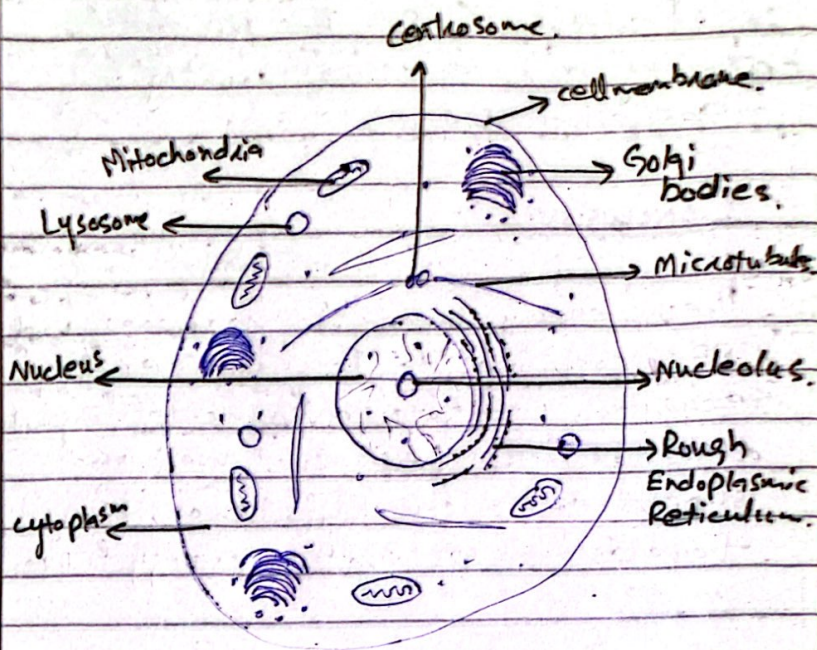 Centrosome.
cell membrane.
Mitochondria
Golgi
bodies.
Lysosome
Microtubule
Nucleus
Nucleolus.
Rough
Endoplasmic
Reticulum.
cytoplasm